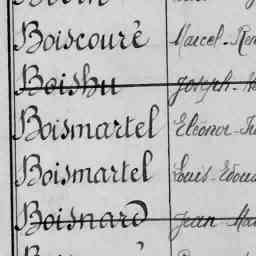 Boiscouré Marcel-René
Boishu Joseph
Boismartel Eléonor
Boismartel Louis-Edouard
Boisnard Jean